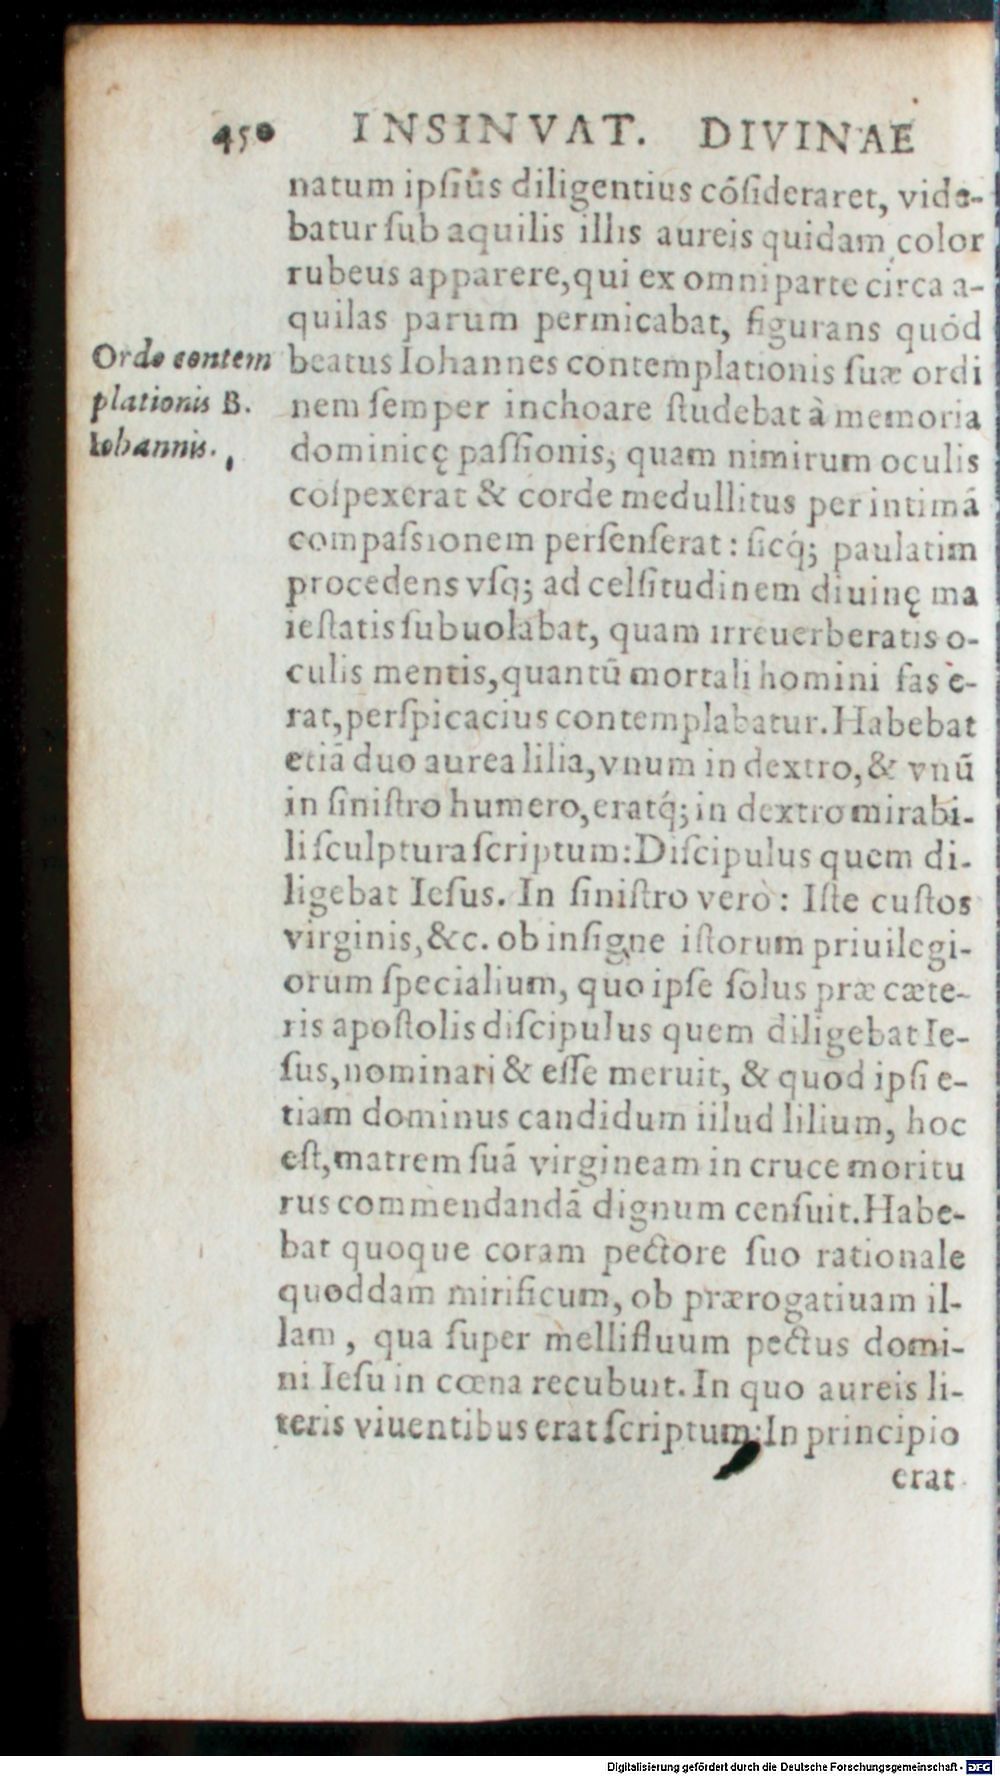 450 INSINVAT. DIVINAE
natum ipſiûs diligentius cõſideraret, vide-
batur ſub aquilis illis aureis quidam color
rubeus apparere, qui ex omni parte circa a-
quilas parum permicabat, figurans quód
beatus Iohannes contemplationis ſuæ ordi
nem ſemper inchoare ſtudebat à memoria
dominicę paſſionis, quam nimirum oculis
coſpexerat & corde medullitus per intimã
compaſsionem perſenſerat: ſicq́; paulatim
procedens vſq; ad celſitudinem diuinę ma
ieſtatis ſubuolabat, quam irreuerberatis o-
culis mentis, quantũ mortali homini fas e-
rat, perſpicacius contemplabatur. Habebat
etiã duo aurea lilia, vnum in dextro, & vnũ
in ſiniſtro humero, eratq́; in dextro mirabi-
li ſculptura ſcriptum: Diſcipulus quem di-
ligebat Ieſus. In ſiniſtro verò: Iſte cuſtos
virginis, &c. ob inſigne iſtorum priuilegi-
orum ſpecialium, quo ipſe ſolus præ cæte-
ris apoſtolis diſcipulus quem diligebat Ie-
ſus, nominari & eſſe meruit, & quod ipſi e-
tiam dominus candidum iilud lilium, hoc
eſt, matrem ſuã virgineam in cruce moritu
rus commendandã dignum cenſuit. Habe-
bat quoque coram pectore ſuo rationale
quoddam mirificum, ob prærogatiuam il-
lam, qua ſuper mellifluum pectus domi-
ni Ieſu in cœna recubuit. In quo aureis li-
teris viuentibus erat ſcriptum: In principio
erat
Ordo contem
plationis B.
Iohannis.
Digitalisierung gefördert durch die Deutsche Forschungsgemeinschaft - DFG